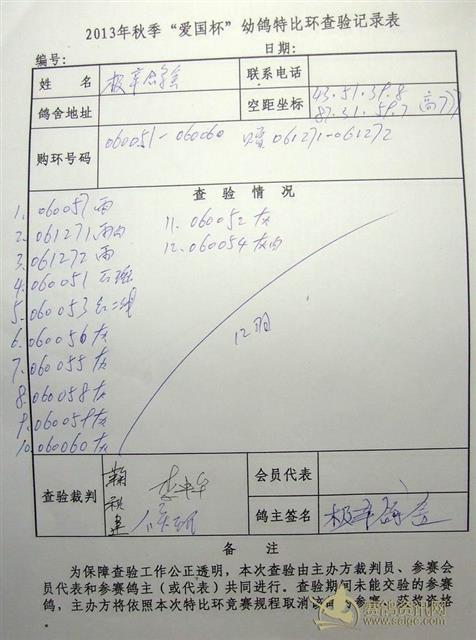 2013年秋季“爱国杯”幼鸽特比环查验记录表
编号： 日期：
姓 名 极辛鸽舍 联系电话
鸽舍地址 空距坐标 43.51.39.8
87.31.59.7
购环号码 060051-060060 061271-061272
查 验 情 况
1. 060057 雨
2. 061271 雨白
3. 061272 雨
4. 060051
5. 060053
6. 060056 灰
7. 060055 灰
8. 060058 灰
9. 060059 灰
10. 060060 灰
11. 060052 灰
12. 060054 灰白
12羽
查验裁判 会员代表
鸽主签名
备 注
为保障查验工作公正透明，本次查验由主办方裁判员、参赛会
员代表和参赛鸽主（或代表）共同进行。查验期间未能交验的参赛
鸽，主办方将依照本次特比环竞赛规程取消该羽的参赛、获奖资格
赛鸽资讯网
www.saige.com